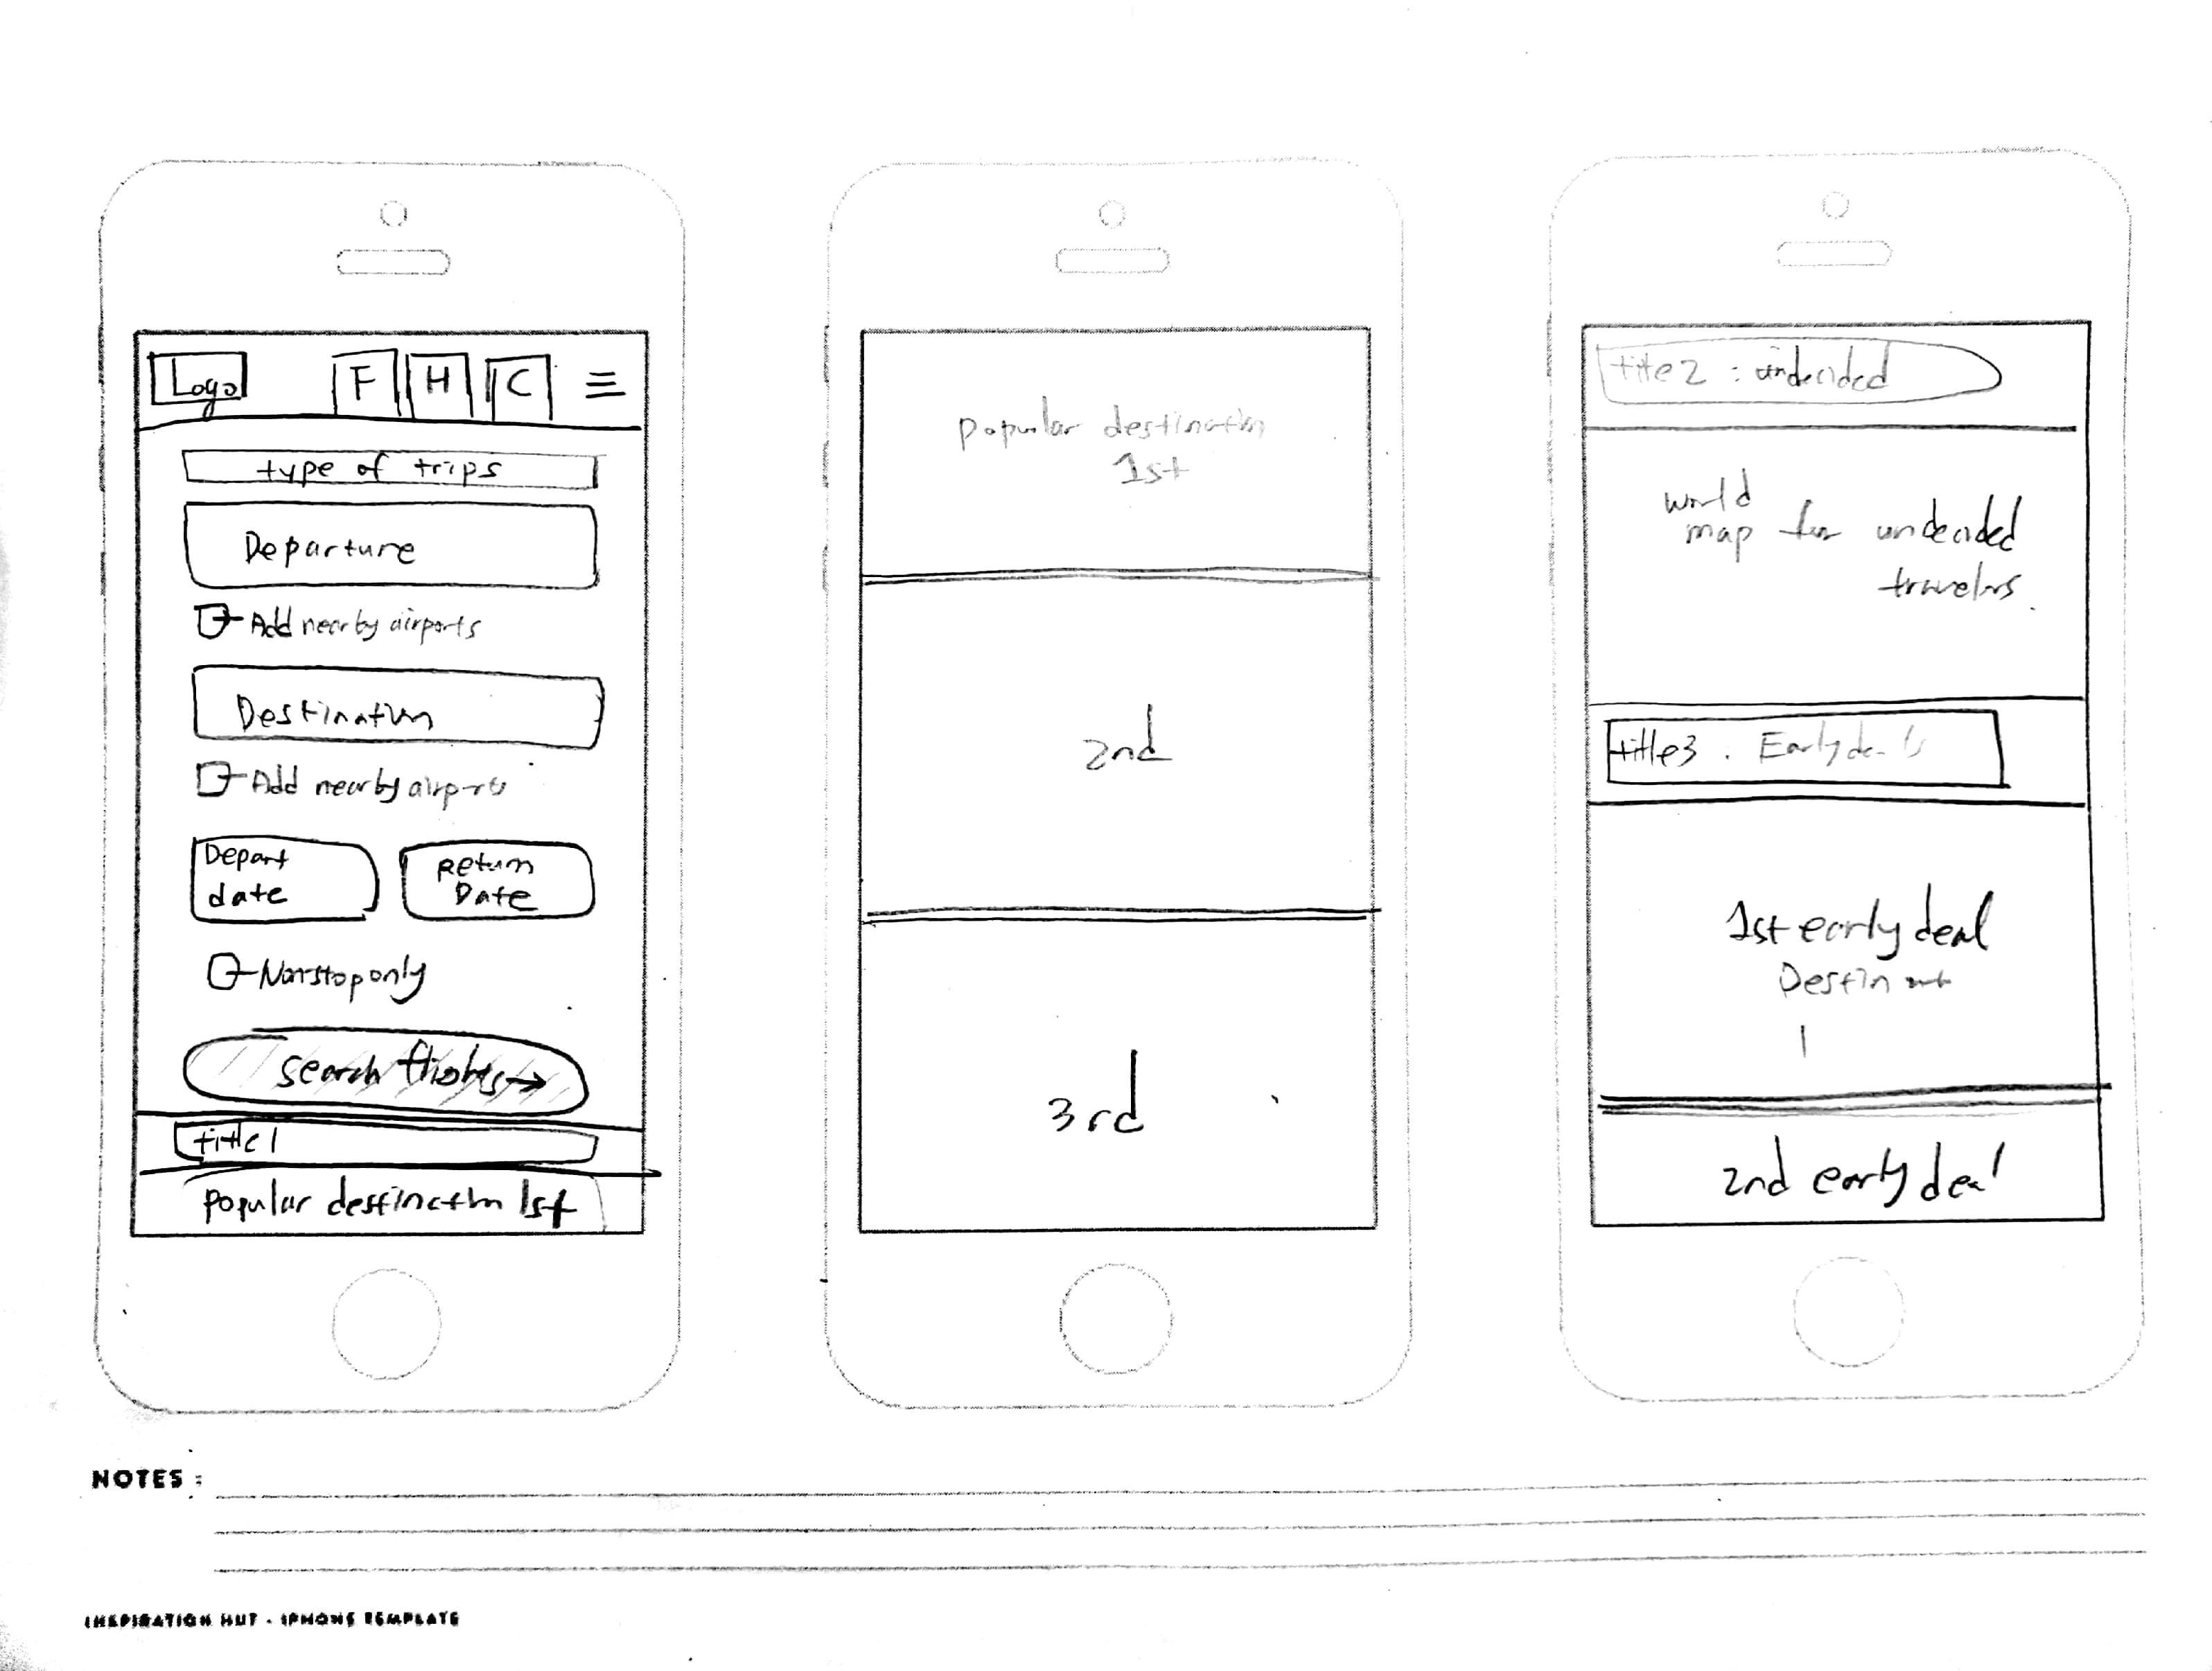 Logo
F
H
C
type of trips
Departure
Add nearby airports
Destination
Add nearby airports
Depart
date
Return
Date
Nonstop only
search flights→
title1
popular destination 1st
popular destination
1st
2nd
3rd
title2 : undecided
world
map for undecided
travelers
title3 . Early deals
1st early deal
2nd early deal
NOTES :
INSPIRATION HUT - IPHONE TEMPLATE